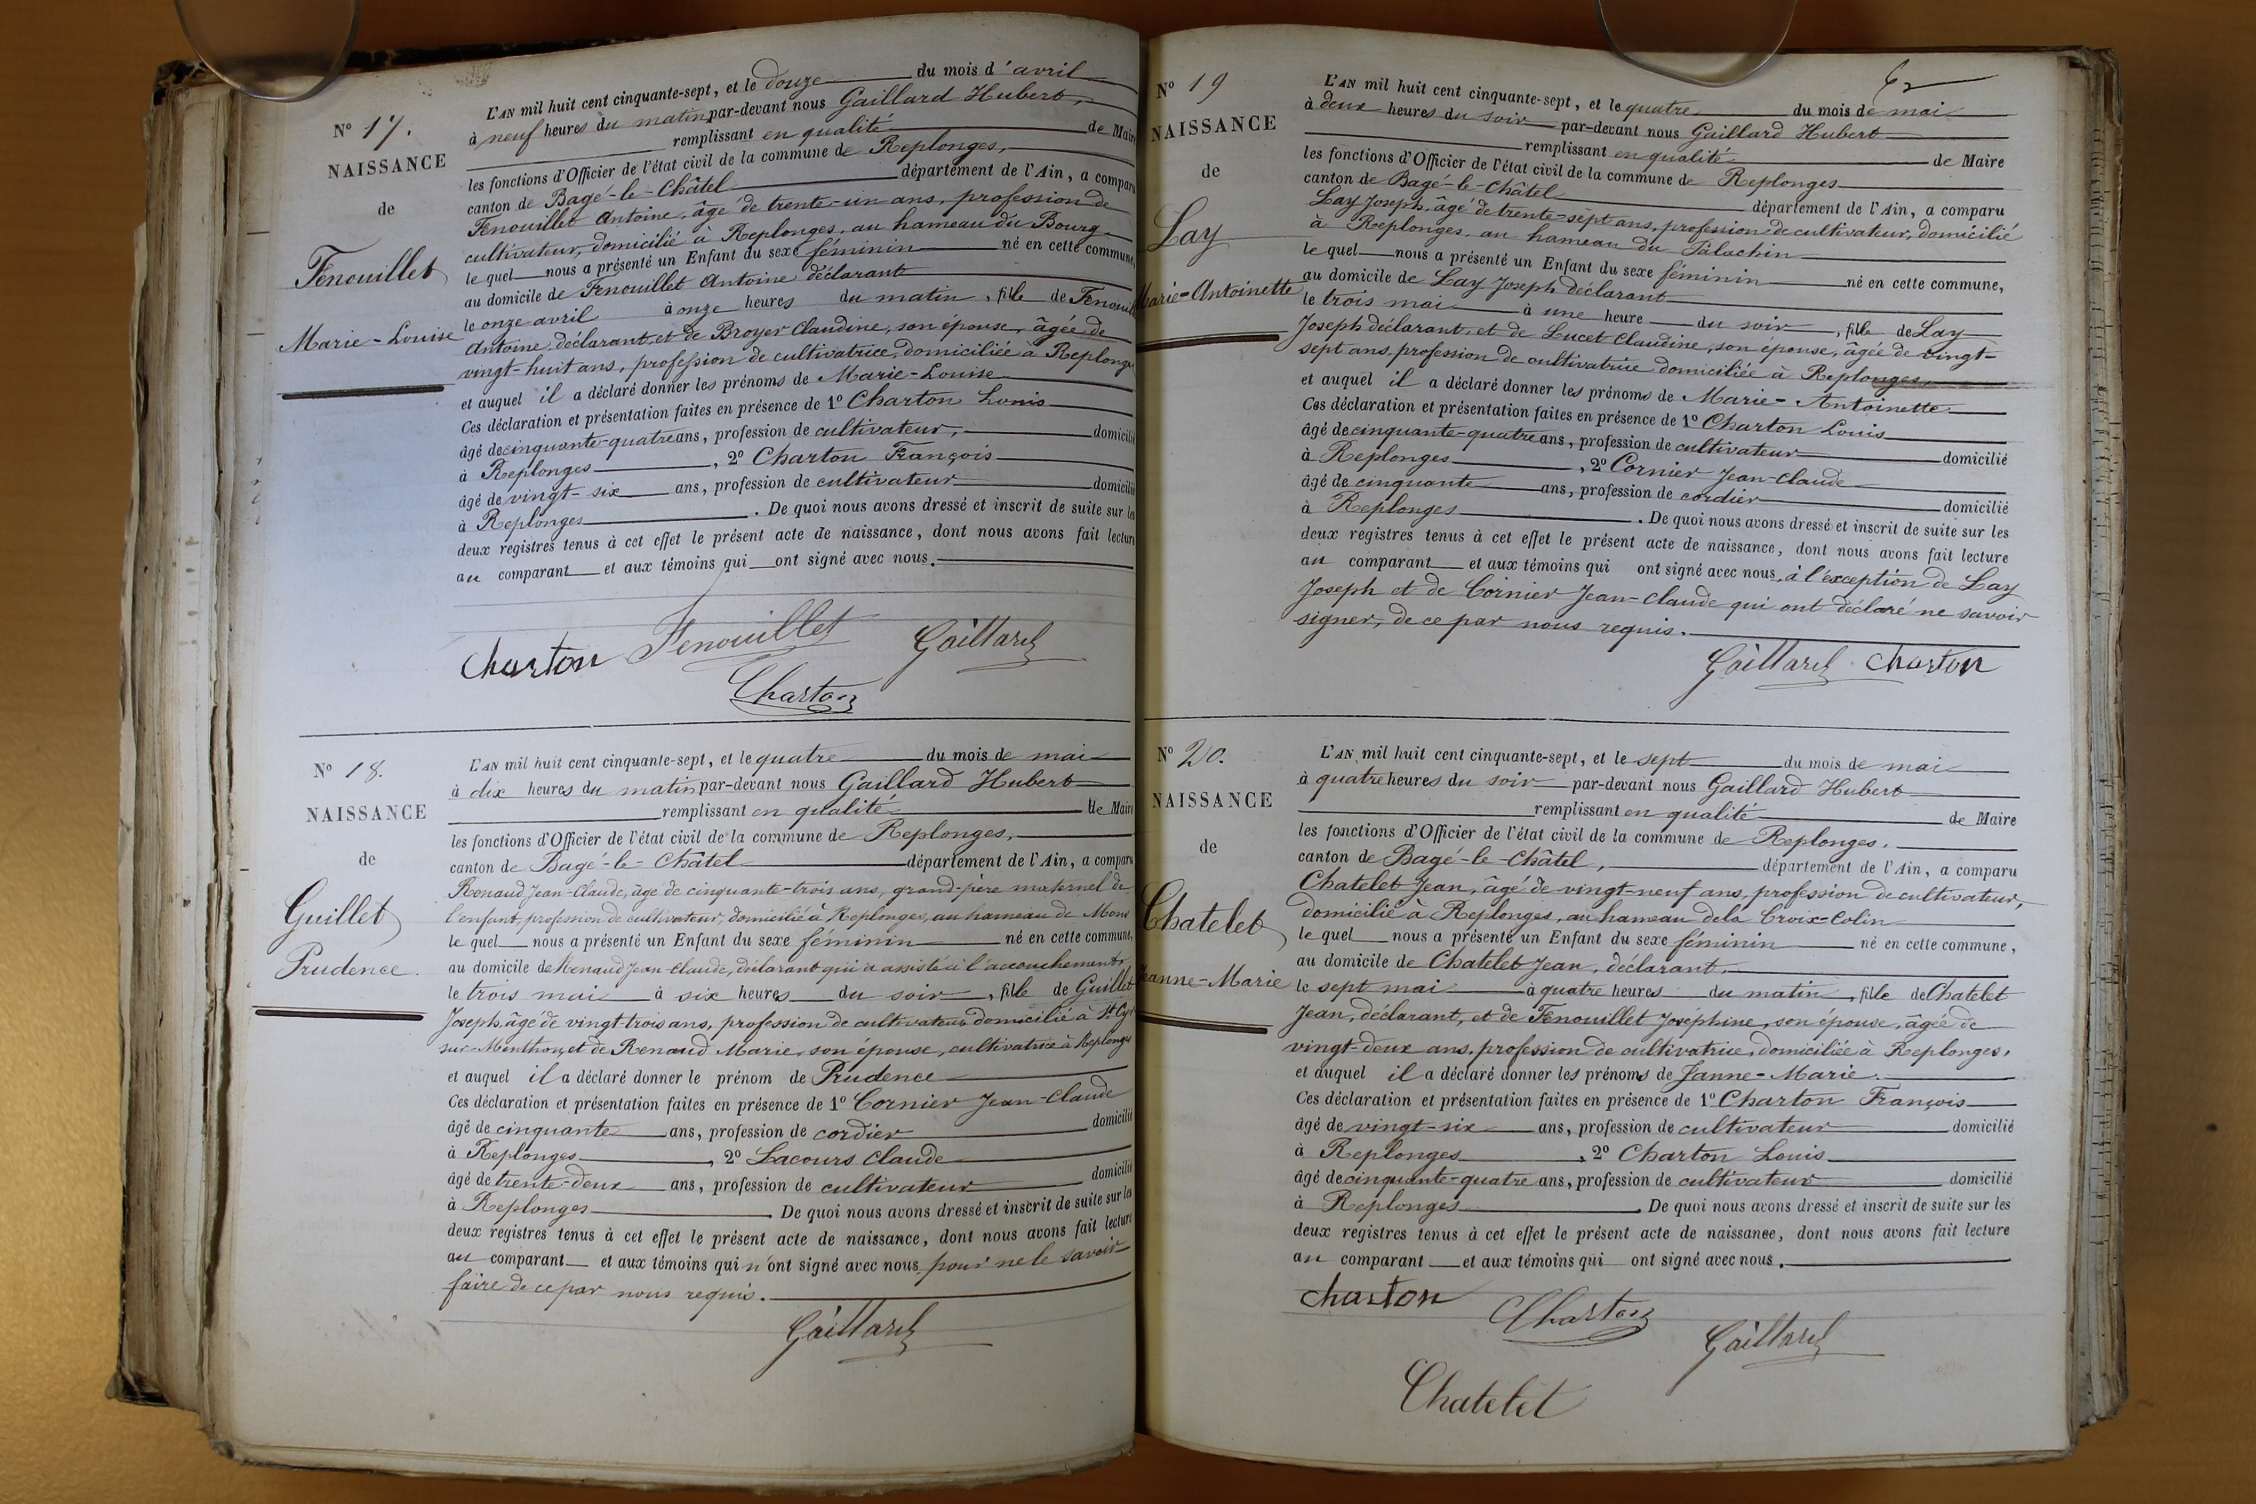 N° 17.
NAISSANCE
de
Fenouillet
Marie-Louise
L'AN mil huit cent cinquante-sept, et le douze du mois d'avril
à neuf heures du matin par-devant nous Gaillard Hubert,
remplissant en qualité de Maire
les fonctions d'Officier de l'état civil de la commune de Replonges,
canton de Bagé-le-Châtel département de l'Ain, a comparu
Fenouillet Antoine, âgé de trente-un ans, profession de
cultivateur, domicilié à Replonges, au hameau du Bourg
le quel nous a présenté un Enfant du sexe féminin né en cette commune,
au domicile de Fenouillet Antoine déclarant
le onze avril à onze heures du matin, fille de Fenouillet
Antoine, déclarant, et de Broyer Claudine, son épouse, âgée de
vingt-huit ans, profession de cultivatrice, domiciliée à Replonges
et auquel il a déclaré donner les prénoms de Marie-Louise
Ces déclaration et présentation faites en présence de 1° Charton Louis
âgé de cinquante-quatre ans, profession de cultivateur, domicilié
à Replonges, 2° Charton François
âgé de vingt-six ans, profession de cultivateur domicilié
à Replonges. De quoi nous avons dressé et inscrit de suite sur les
deux registres tenus à cet effet le présent acte de naissance, dont nous avons fait lecture
au comparant et aux témoins qui ont signé avec nous.
Charton Fenouillet Gaillard
Charton
N° 18.
NAISSANCE
de
Guillet
Prudence.
L'AN mil huit cent cinquante-sept, et le quatre du mois de mai
à dix heures du matin par-devant nous Gaillard Hubert
remplissant en qualité de Maire
les fonctions d'Officier de l'état civil de la commune de Replonges,
canton de Bagé-le-Châtel département de l'Ain, a comparu
Renaud Jean-Claude, âgé de cinquante-trois ans, grand-père maternel de
l'enfant, profession de cultivateur, domicilié à Replonges, au hameau de Mons
le quel nous a présenté un Enfant du sexe féminin né en cette commune,
au domicile de Renaud Jean-Claude, déclarant qui a assisté à l'accouchement,
le trois mai à six heures du soir, fille de Guillet
Joseph, âgé de vingt trois ans, profession de cultivateur domicilié à St Cyr
sur-Menthon, et de Renaud Marie, son épouse, cultivatrice à Replonges
et auquel il a déclaré donner le prénom de Prudence
Ces déclaration et présentation faites en présence de 1° Cornier Jean-Claude
âgé de cinquante ans, profession de cordier domicilié
à Replonges, 2° Lacours Claude
âgé de trente-deux ans, profession de cultivateur domicilié
à Replonges. De quoi nous avons dressé et inscrit de suite sur les
deux registres tenus à cet effet le présent acte de naissance, dont nous avons fait lecture
au comparant et aux témoins qui n'ont signé avec nous pour ne le savoir
faire de ce par nous requis.
Gaillard
62
N° 19
NAISSANCE
de
Lay
Marie-Antoinette
L'AN mil huit cent cinquante-sept, et le quatre du mois de mai
à deux heures du soir par-devant nous Gaillard Hubert
remplissant en qualité de Maire
les fonctions d'Officier de l'état civil de la commune de Replonges
canton de Bagé-le-Châtel département de l'Ain, a comparu
Lay Joseph, âgé de trente-sept ans, profession de cultivateur, domicilié
à Replonges, au hameau du Paluchin
le quel nous a présenté un Enfant du sexe féminin né en cette commune,
au domicile de Lay Joseph déclarant
le trois mai à une heure du soir, fille de Lay
Joseph déclarant, et de Lucet Claudine, son épouse, âgée de vingt-
sept ans, profession de cultivatrice domiciliée à Replonges,
et auquel il a déclaré donner les prénoms de Marie-Antoinette.
Ces déclaration et présentation faites en présence de 1° Charton Louis
âgé de cinquante-quatre ans, profession de cultivateur domicilié
à Replonges, 2° Cornier Jean-Claude
âgé de cinquante ans, profession de cordier domicilié
à Replonges. De quoi nous avons dressé et inscrit de suite sur les
deux registres tenus à cet effet le présent acte de naissance, dont nous avons fait lecture
au comparant et aux témoins qui ont signé avec nous, à l'exception de Lay
Joseph et de Cornier Jean-Claude qui ont déclaré ne savoir
signer, de ce par nous requis.
Gaillard Charton
N° 20.
NAISSANCE
de
Chatelet
Jeanne-Marie
L'AN mil huit cent cinquante-sept, et le sept du mois de mai
à quatre heures du soir par-devant nous Gaillard Hubert
remplissant en qualité de Maire
les fonctions d'Officier de l'état civil de la commune de Replonges.
canton de Bagé-le-Châtel, département de l'Ain, a comparu
Chatelet Jean, âgé de vingt-neuf ans, profession de cultivateur,
domicilié à Replonges, au hameau de la Croix-Colin
le quel nous a présenté un Enfant du sexe féminin né en cette commune,
au domicile de Chatelet Jean, déclarant,
le sept mai à quatre heures du matin, fille de Chatelet
Jean, déclarant, et de Fenouillet Joséphine, son épouse, âgée de
vingt-deux ans, profession de cultivatrice, domiciliée à Replonges,
et auquel il a déclaré donner les prénoms de Janne-Marie.
Ces déclaration et présentation faites en présence de 1° Charton François
âgé de vingt-six ans, profession de cultivateur domicilié
à Replonges, 2° Charton Louis
âgé de cinquante-quatre ans, profession de cultivateur domicilié
à Replonges. De quoi nous avons dressé et inscrit de suite sur les
deux registres tenus à cet effet le présent acte de naissance, dont nous avons fait lecture
au comparant et aux témoins qui ont signé avec nous.
Charton Charton Gaillard
Chatelet